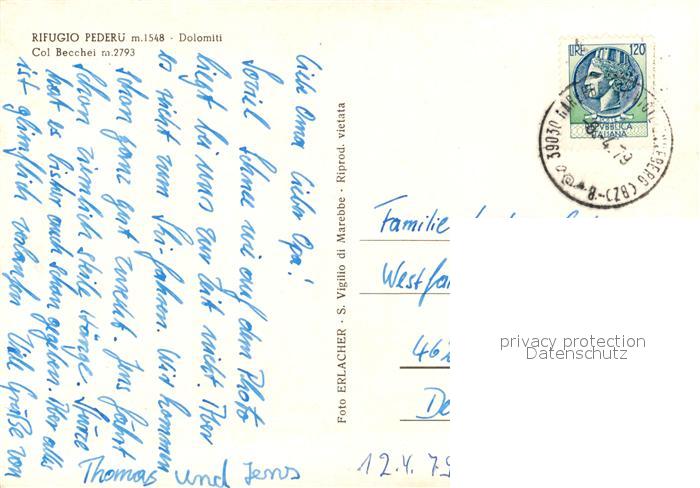 RIFUGIO PEDERÜ m.1548 - Dolomiti
Col Becchei m.2793
Liebe Oma, lieber Opa!
Soviel Schnee wie auf dem Photo
liegt bei uns zur Zeit nicht. Aber
es reicht zum Ski-fahren. Wir kommen
schon ganz gut zurecht. Jens fährt
schon ziemlich steile Hänge. Stürze
hat es bisher auch schon gegeben. Aber alles
ist glimpflich verlaufen. Viele Grüße von
Thomas und Jens
Foto ERLACHER - S. Vigilio di Marebbe - Riprod. vietata
LIRE 120
ITALIANA
39030
(BZ)
Familie
Westfa
46
De
12.4.79
privacy protection
Datenschutz